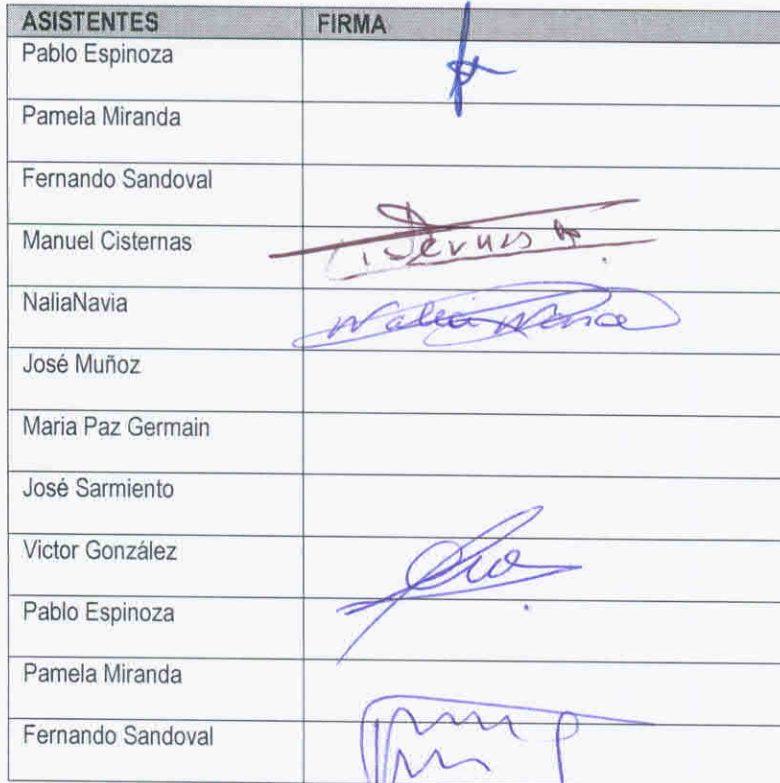 ASISTENTES FIRMA
Pablo Espinoza
Pamela Miranda
Fernando Sandoval
Manuel Cisternas
NaliaNavia Nalia Navia
José Muñoz
Maria Paz Germain
José Sarmiento
Victor González
Pablo Espinoza
Pamela Miranda
Fernando Sandoval